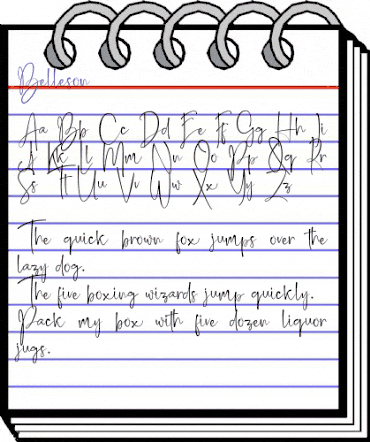 Belleson
Aa Bb Cc Dd Ee Ff Gg Hh Ii
Jj Kk Ll Mm Nn Oo Pp Qq Rr
Ss Tt Uu Vv Ww Xx Yy Zz
The quick brown fox jumps over the
lazy dog.
The five boxing wizards jump quickly.
Pack my box with five dozen liquor
jugs.